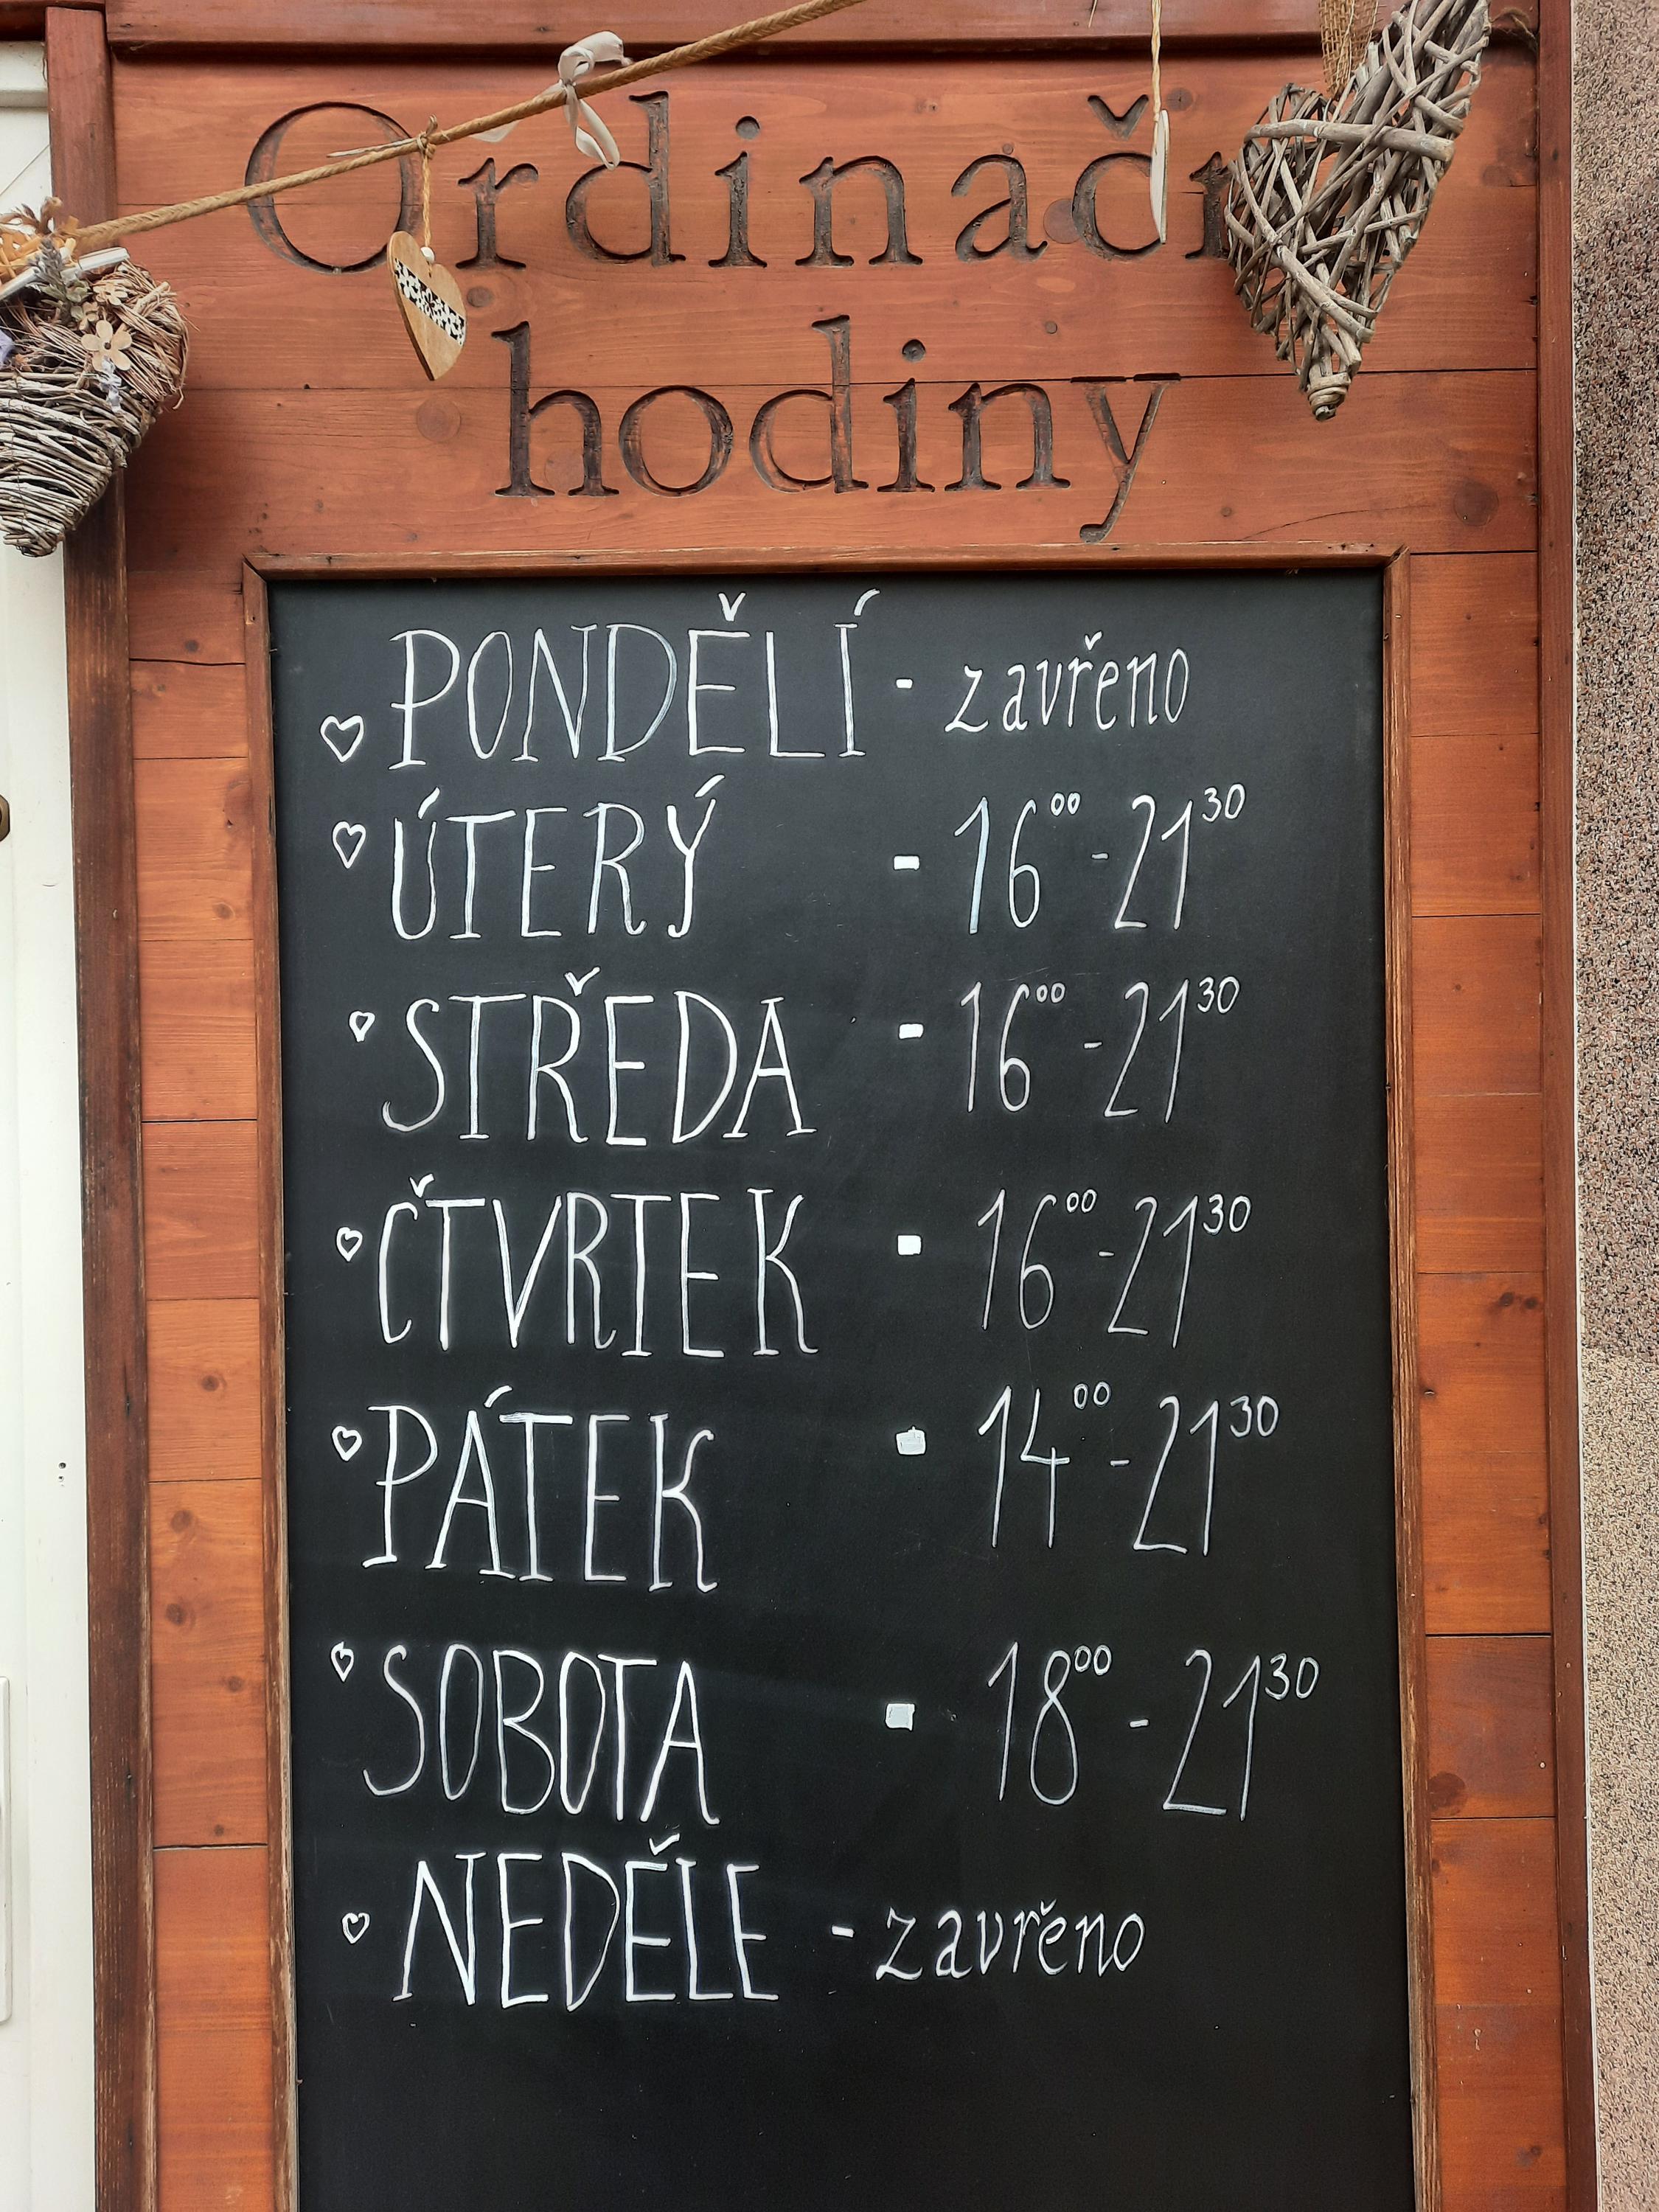 Ordinačn
hodiny
PONDĚLÍ - zavřeno
ÚTERÝ - 16⁰⁰ - 21³⁰
STŘEDA - 16⁰⁰ - 21³⁰
ČTVRTEK - 16⁰⁰ - 21³⁰
PÁTEK - 14⁰⁰ - 21³⁰
SOBOTA - 18⁰⁰ - 21³⁰
NEDĚLE - zavřeno